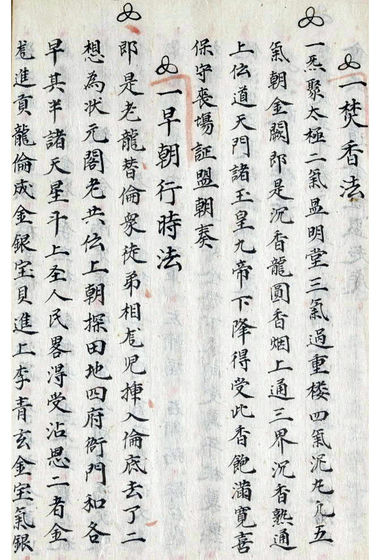 一焚香法
一炁聚太極二氣盟明堂三氣過重楼四氣泥九凡五
氣朝金闕即是沉香龍圓香烟上通三界沉香熟通
上伝道天門諸玉皇九帝下降得受此香飽滿寬喜
保守喪場証盟朝奏
一早朝行時法
即是老龍替倫衆徒弟相児入倫底去了二
想為狀元閣老共伝上朝探田地四府衙門和各
早其半諸天星斗上圣人民畧得受沾思二者金
進貢龍倫成金銀宝貝進上李青玄金宝氣銀